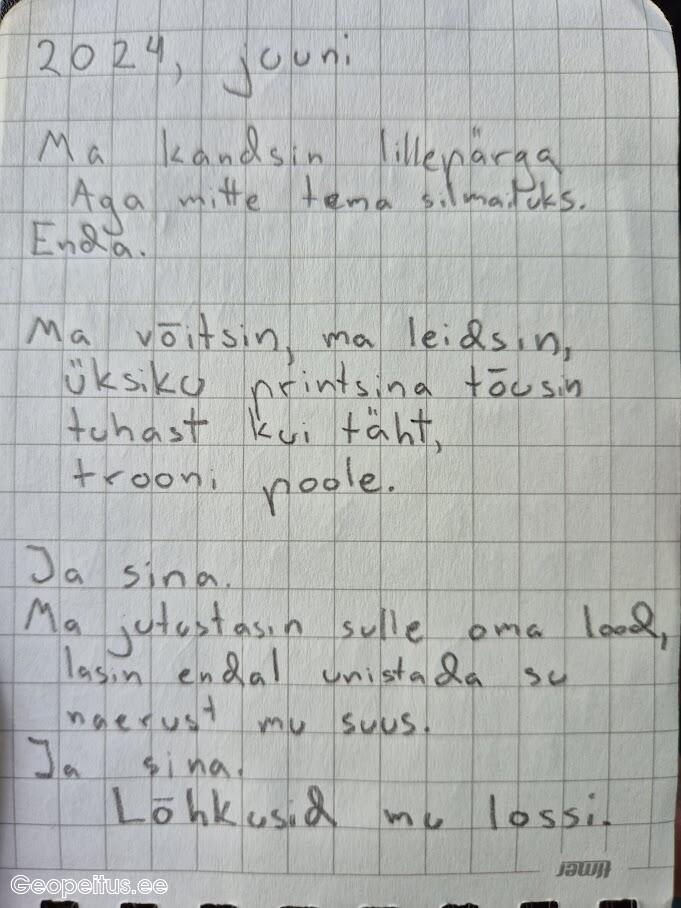 2024, juuni
Ma kandsin lillepärga
Aga mitte tema silmailuks.
Enda.
Ma võitsin, ma leidsin,
üksiku printsina tõusin
tuhast kui täht,
trooni poole.
Ja sina.
Ma jutustasin sulle oma lood,
lasin endal unistada su
naerust mu suus.
Ja sina.
Lõhkusid mu lossi.
timer
Geopeitus.ee